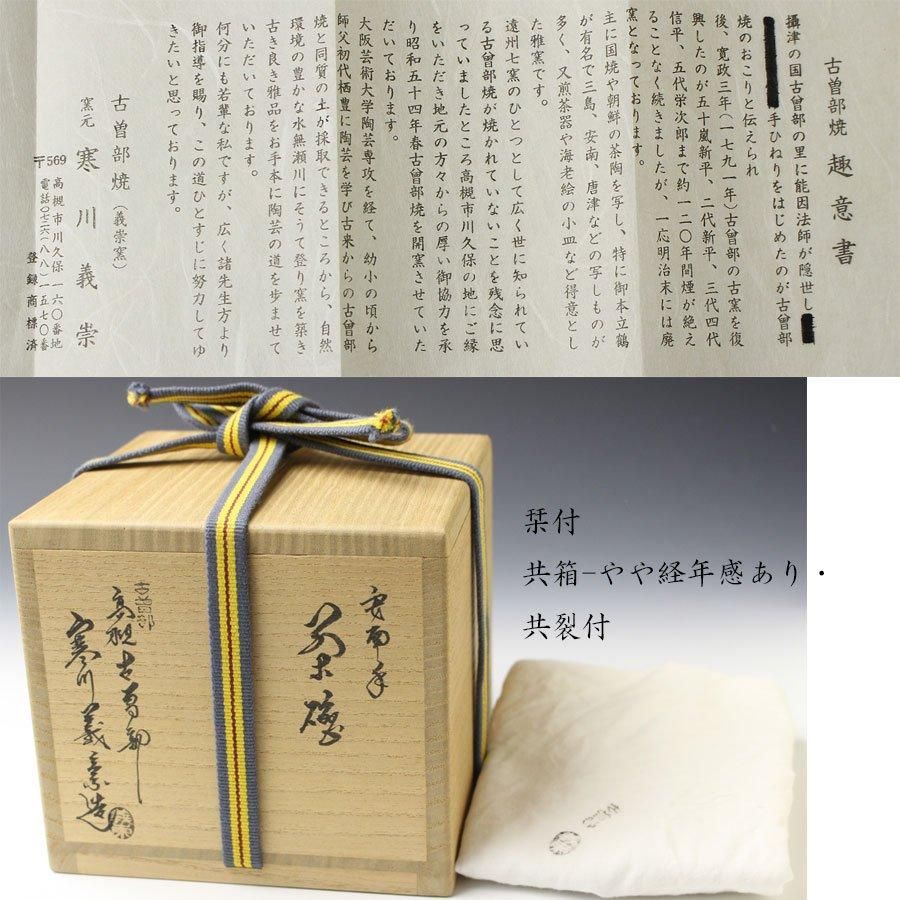 古曽部焼 趣意書
攝津の国古曽部の里に能因法師が隠世し
手ひねりをはじめたのが古曽部
焼のおこりと伝えられ
後、寛政三年（一七九一年）古曽部の古窯を復
興したのが五十嵐新平、二代新平、三代四代
信平、五代栄次郎まで約一二〇年間煙が絶え
ることなく続きましたが、一応明治末には廃
窯となっております。
主に国焼や朝鮮の茶陶を写し、特に御本立鶴
が有名で三島、安南、唐津などの写しものが
多く、又煎茶器や海老絵の小皿など得意とし
た雅窯です。
遠州七窯のひとつとして広く世に知られてい
る古曽部焼が焼かれていないことを残念に思
っていましたところ高槻市川久保の地にご縁
をいただき地元の方々からの厚い御協力を承
り昭和五十四年春古曽部焼を開窯させていた
だいております。
大阪芸術大学陶芸専攻を経て、幼小の頃から
師父初代栖豊に陶芸を学び古来からの古曽部
焼と同質の土が採取できるところから、自然
環境の豊かな水無瀬川にそうて登り窯を築き
古き良き雅品をお手本に陶芸の道を歩ませて
いただいております。
何分にも若輩な私ですが、広く諸先生方より
御指導を賜り、この道ひとすじに努力してゆ
きたいと思っております。
古曽部焼（義崇窯）
窯元 寒川義崇
〒569 高槻市川久保一六〇番地
電話〇七二六（八八）一五七〇番
登録商標済
安南手
茶碗
古曽部
高槻古曽部
寒川義崇造
栞付
共箱-やや経年感あり・
共裂付